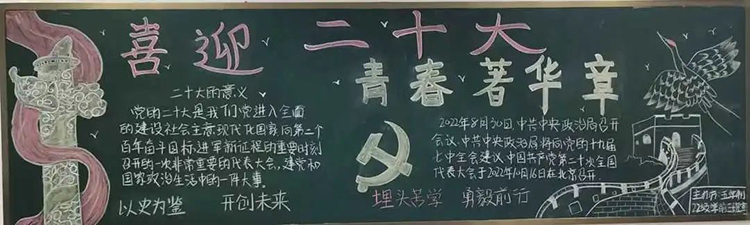 喜迎二十大
青春著华章
二十大的意义
党的二十大是我们党进入全面
的建设社会主意现代化国家向第二个
百年奋斗目标进军新征程的重要时刻
召开的一次非常重要的代表大会,是党和
国家政治生活中的一件大事。
以史为鉴 开创未来
2022年8月30日,中共中央政治局召开
会议,中共中央政治局将向党的十九届
七中全会建议,中国共产党第二十次全国
代表大会于2022年10月16日在北京召开
埋头苦学 勇毅前行